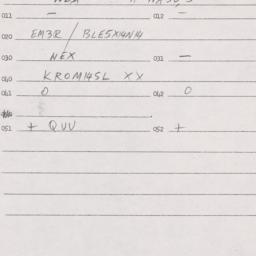 011 — 012 —
020 EM3R / BLE5X14N14
030 NEX 031 —
040 KROM14SL XX
041 0 042 0
051 + QUU 052 +